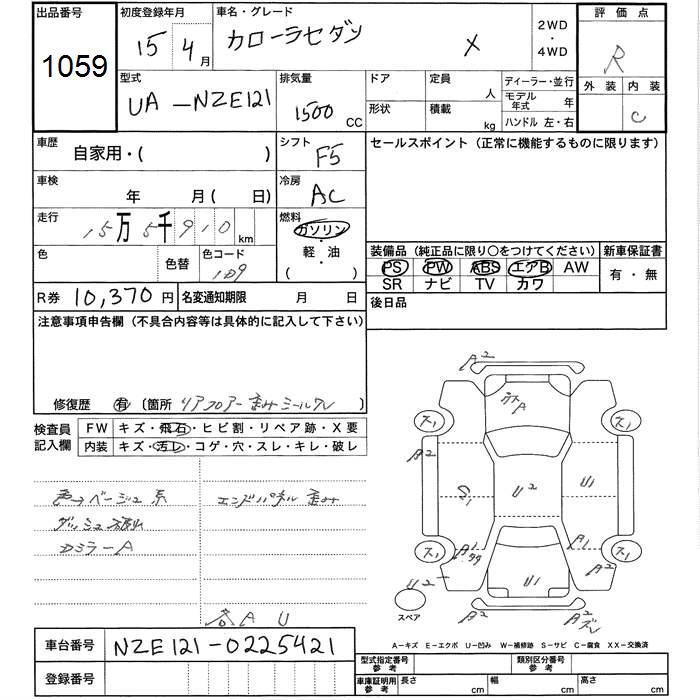 出品番号 初度登録年月 車名・グレード 2WD・4WD 評価点
1059 15年4月 カローラセダン X R
外装 内装
C
型式 排気量 ドア 定員 人 ディーラー・並行
UA-NZE121 1500CC 形状 積載 kg モデル年式 年
ハンドル 左・右
車歴 自家用・( ) シフト F5 セールスポイント (正常に機能するものに限ります)
車検 年 月( 日) 冷房 AC
走行 15万5千910km 燃料 ガソリン・軽・油 ( )
色 色替 色コード 1D9
装備品 (純正品に限り○をつけてください) 新車保証書
PS PW ABS エアB AW 有・無
SR ナビ TV カワ
R券 10,370円 名変通知期限 月 日 後日品
注意事項申告欄 (不具合内容等は具体的に記入して下さい)
修復歴 有 〔箇所 リアフロアー歪みシールヌレ〕
検査員記入欄 FW キズ・飛石・ヒビ割・リペア跡・X要
内装 キズ・汚レ・コゲ・穴・スレ・キレ・破レ
色→ベージュ系 エンドパネル歪み
ダッシュ
Dミラ-A
各AU
A2
A
ス1 ス1
A2
U2 U1
ス1 A1 A1 ス1
A2
U2 U1
スペア A2 A2
A-キズ E-エクボ U-凹み W-補修跡 S-サビ C-腐食 XX-交換済
車台番号 NZE121-0225421
型式指定番号参考 類別区分番号参考
登録番号 車庫証明用参考 長さ cm 幅 cm 高さ cm